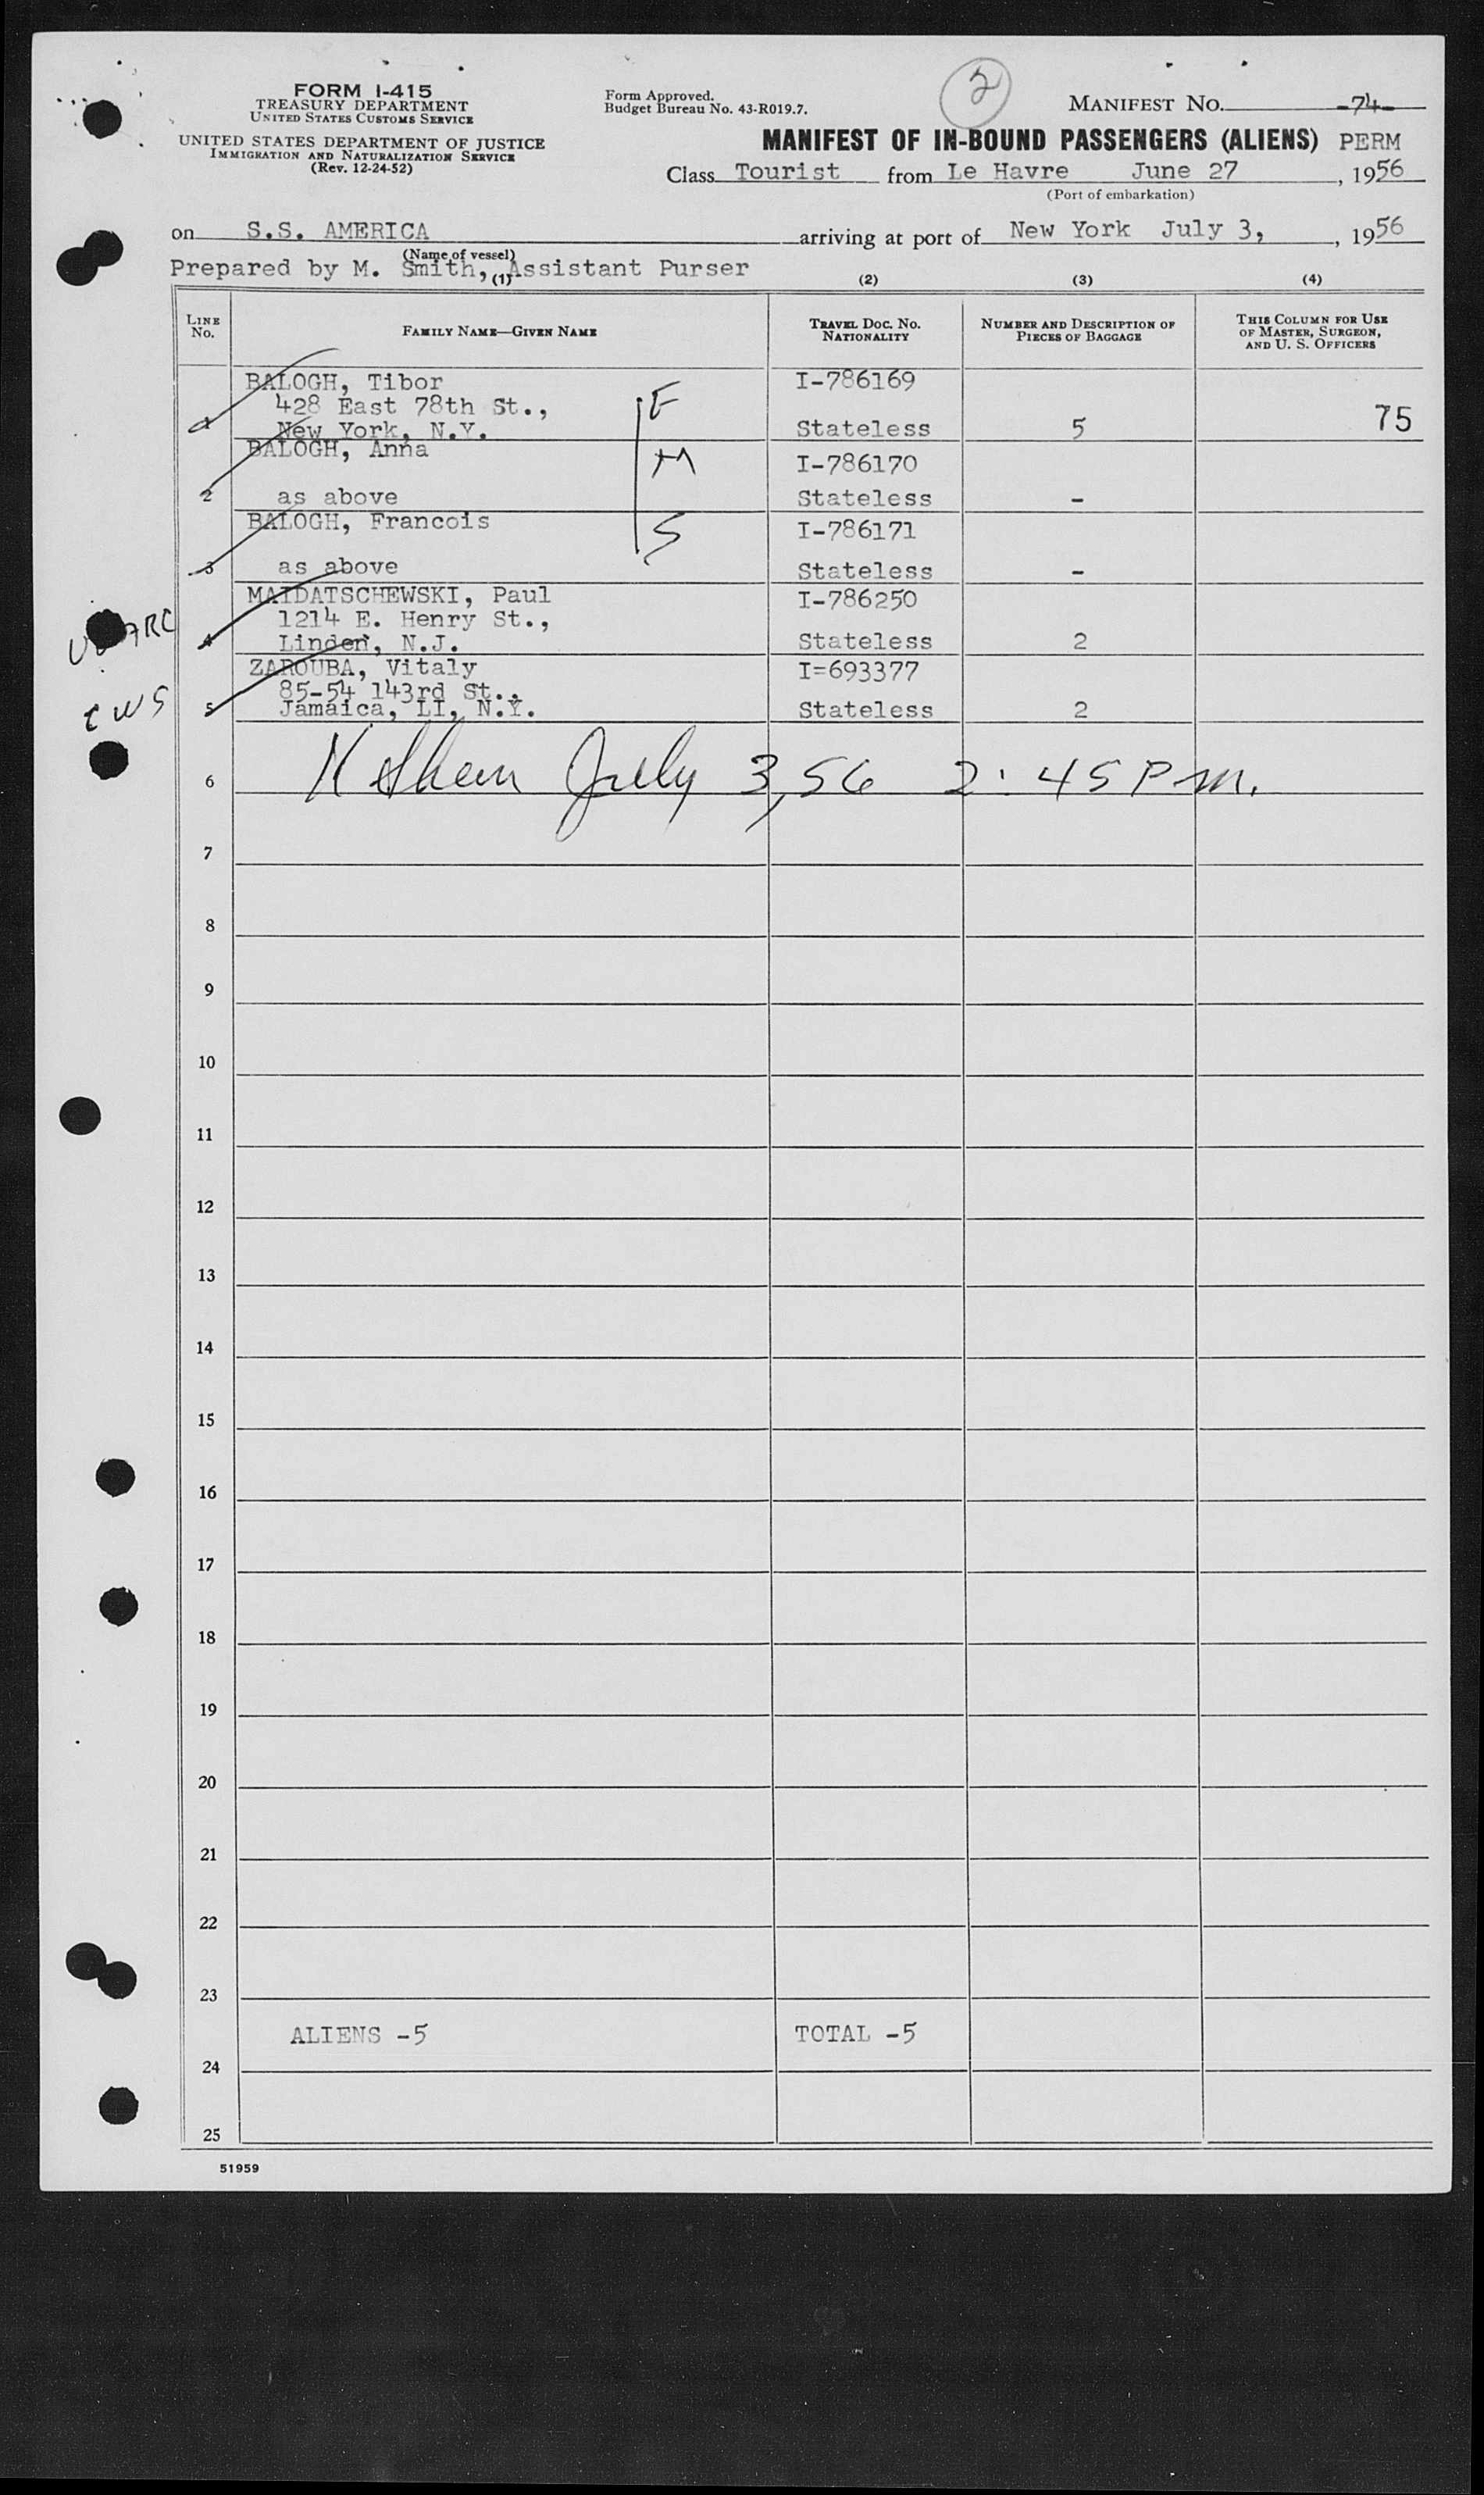 FORM I-415
TREASURY DEPARTMENT
UNITED STATES CUSTOMS SERVICE
UNITED STATES DEPARTMENT OF JUSTICE
IMMIGRATION AND NATURALIZATION SERVICE
(Rev. 12-24-52)
Form Approved.
Budget Bureau No. 43-R019.7.
2
MANIFEST NO. -74-
MANIFEST OF IN-BOUND PASSENGERS (ALIENS) PERM
Class Tourist from Le Havre June 27, 1956
(Port of embarkation)
on S.S. AMERICA arriving at port of New York July 3, , 1956
(Name of vessel)
Prepared by M. Smith, Assistant Purser
(1) (2) (3) (4)
LINE NO. FAMILY NAME—GIVEN NAME TRAVEL DOC. NO. NATIONALITY NUMBER AND DESCRIPTION OF PIECES OF BAGGAGE THIS COLUMN FOR USE OF MASTER, SURGEON, AND U. S. OFFICERS
BALOGH, Tibor I-786169
428 East 78th St., F
1 New York, N.Y. Stateless 5 75
BALOGH, Anna M I-786170
2 as above Stateless -
BALOGH, Francois S I-786171
3 as above Stateless -
MAIDATSCHEWSKI, Paul I-786250
1214 E. Henry St.,
4 Linden, N.J. Stateless 2
ZAROUBA, Vitaly I=693377
85-54 143rd St.,
5 Jamaica, LI, N.Y. Stateless 2
CWS
6 July 3, 56 2:45 P m.
7
8
9
10
11
12
13
14
15
16
17
18
19
20
21
22
23
ALIENS -5 TOTAL -5
24
25
51959